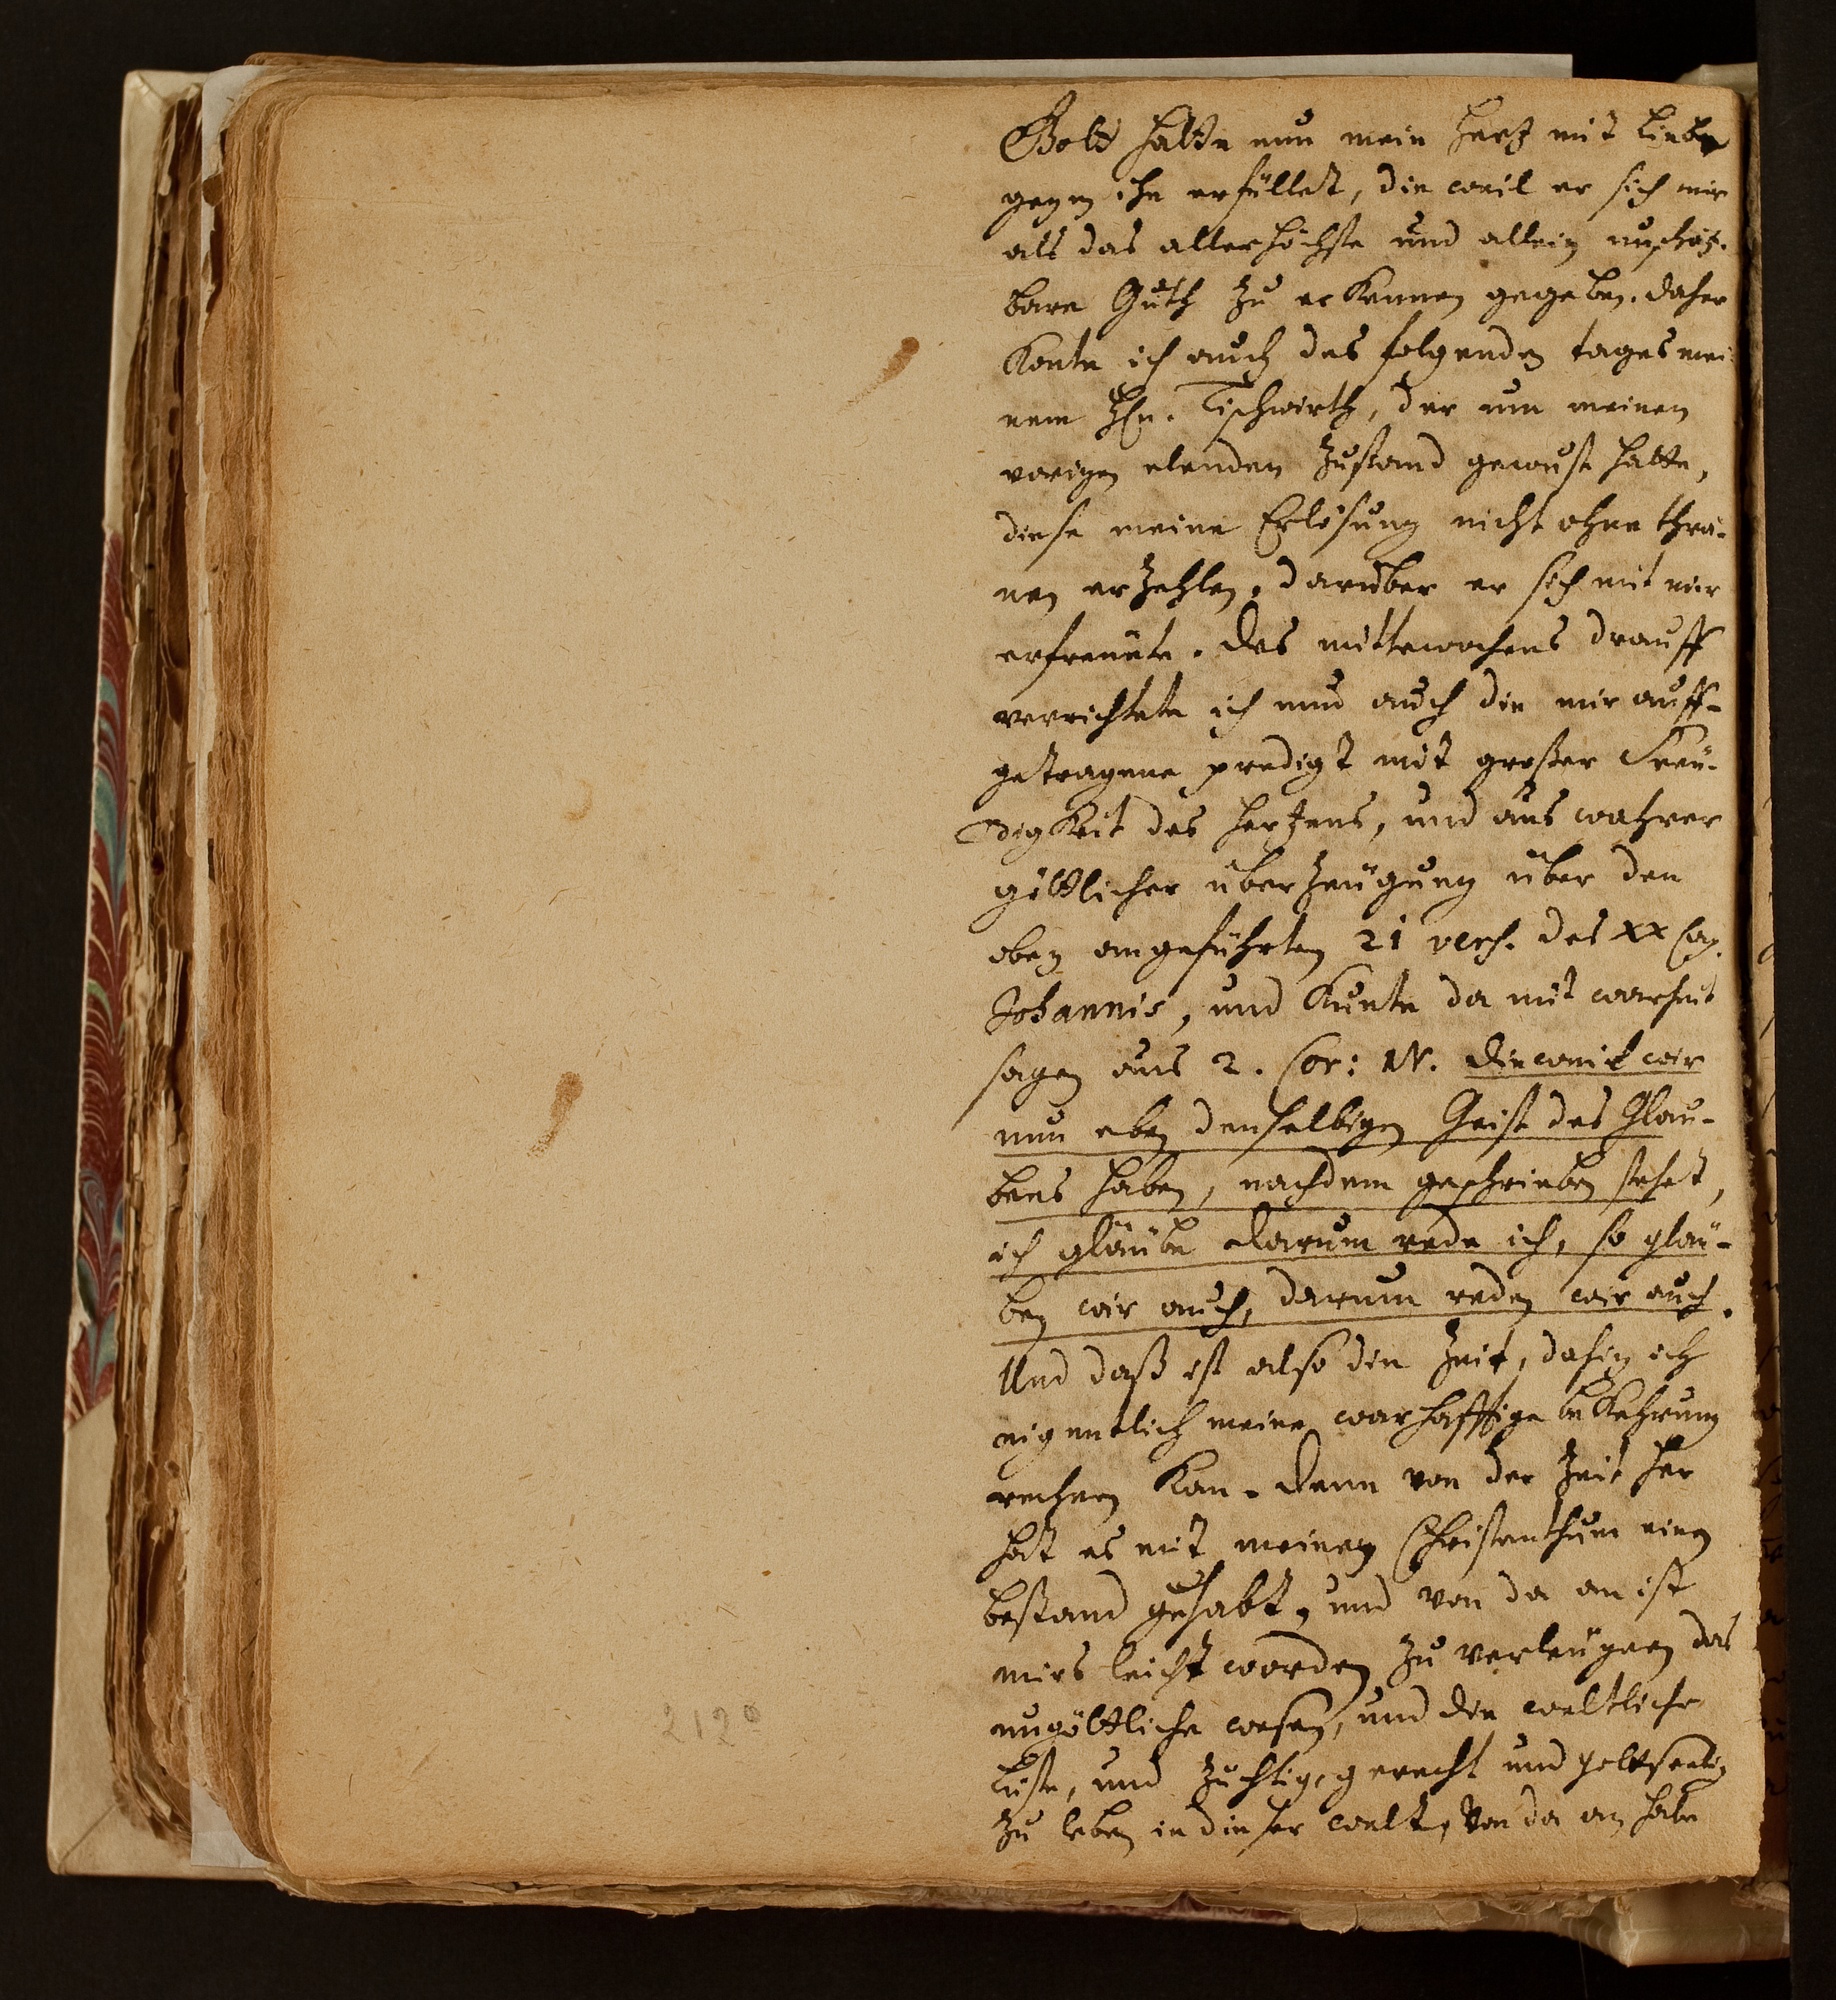 Gott hatte nun mein Hertz mit Liebe
gegen ihn erfüllet, die weil er sich mir
als das allerhöchste und allein unschätz-
bare Guth zu erkennen gegeben. daher
konte ich auch des folgenden tages mei
nem Hn. Tischwirth, der um meinen
vorigen elenden Zustand gewust hatte,
diese meine Erlösung nicht ohne thrä-
nen erzehlen, darüber er sich mit mir
erfreuete. des mittewochens drauff
verrichtete ich nun auch die mir auff-
getragene predigt mit großer Freu-
digkeit des Hertzens, und aus wahrer
göttlicher überzeugung über den
oben angeführten 21 vers. des XX Cap.
Johannis, und kunte da mit warheit
sagen aus 2. Cor: IV. dieweil wir
nun eben denselbigen Geist des Glau-
bens haben, nachdem geschrieben stehet,
ich gläube darum rede ich, so gläu-
ben wir auch, darum reden wir auch.
Und daß ist also die Zeit, dahin ich
eigentlich meine warhafftige bekehrung
rechnen kan. denn von der Zeit her
hat es mit meinem Christenthum einen
bestand gehabt, und von da an ist
mirs leicht worden zu verleugnen das
ungöttliche wesen, und die weltliche
lüste, und züchtig, gerecht und gottseelig
zu leben in dieser welt, Von da an habe
2120